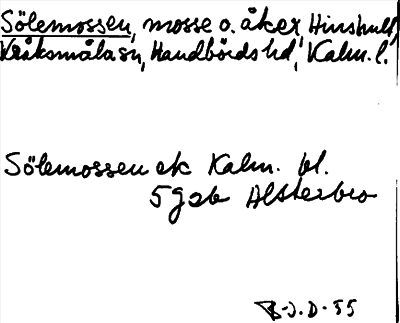 Sölemossen, mosse o. åker, Hinshult,
Kråksmåla sn, Handbörds hd, Kalm. l.
Sölemossen ek Kalm. bl.
5 G 2b Alsterbro
B-J.D-55